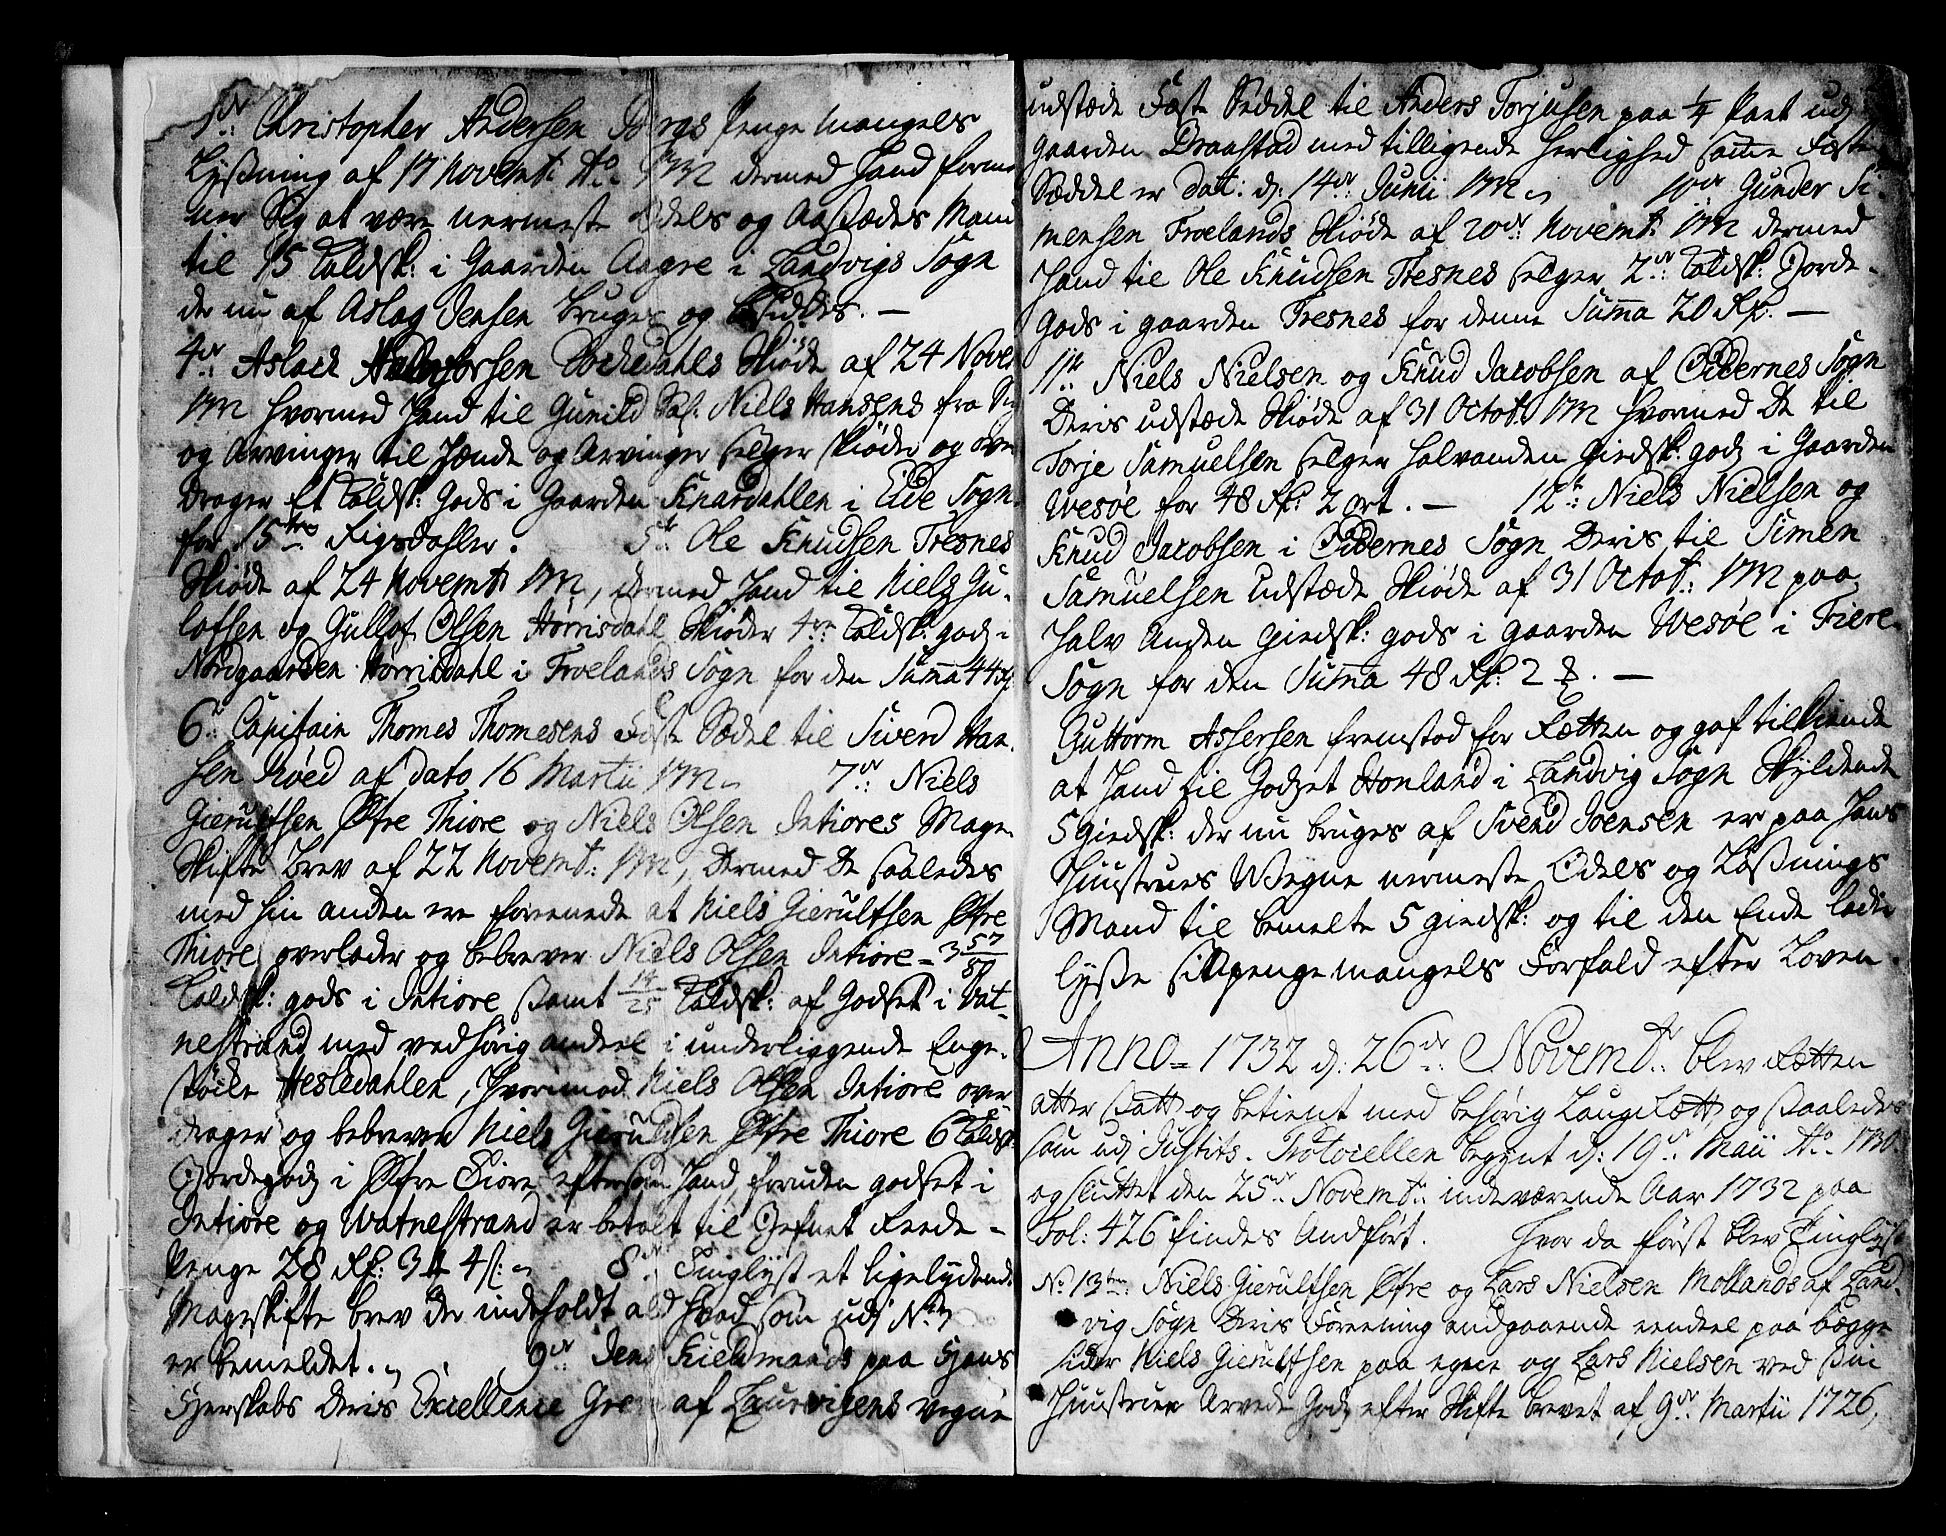 Christopher Andersen Penge Mangels
Lyßning af 17 Novembr: Ao: dermed hand forme
ner Sig at være nermeste Odels og Aasædes Mand
til 15 Toldsk: i Gaarden Aagre i Landvigs Sogn
der nu af Aslag Jensen bruges og besiddes. —
4de: Aslack Skiöde af 24 Novem
hvormed hand til Gunild Sal: Niels Hansens fra
og Arvinger til hænde og Arvinger selger skiöder og over
drager Et Toldsk: Gods i Gaarden Knardahlen i Eide Sogn
for 15ten Rigsdahler. 5te Ole Knudsen Tresnes
Skiöde af 24 Novembr: 1732, dermed hand til Niels Gu-
lofsen og Gullof Olsen Hörrisdahl Skiöder 4re Toldsk: gods i
Nordgaarden Horrisdahl i Froelands Sogn for den Suma 44
6te: Capitain Thomes Thomesens Fæste Sædel til Siverd Han-
sen Röed af dato 16 Martii 7de: Niels
Gierulfsen Øfre Thiore og Niels Olsen Intiores Mage-
Skifte brev af 22 Novembr: 1732, dermed de saaledes
med hin anden ere foreenede at Niels Gierulfsen Øfre
Thiore overlader og bebrever Niels Olsen Intiore = 3 57/
Toldsk: gods i Intiore samt 14/25 Toldsk: af Godset i Vat-
nestrand med vedhörig andeel i underliggende Enge-
stöele Hesledahlen, hvorimod Niels Olsen Intiore over
drager og bebrever Niels Gierulfsen Øfre Thiore 6 Toldsk:
Jordegods i Øfre Tiore, eftersom hand, foruden godset i
Intiore og Watnestrand er betalt til Jefnet Reede-
Penge 28 Rd: 3 4 s: 8de: Tinglyst et ligelydende
Mageskifte brev der indeholdt alt hvad som udj No 7
er bemeldet. 9de: Jens Kieldmands paa Hans
Herskabs Deris Excellence Grev af Laurvigens vegne
udstæde Fæste Seddel til Anders Torjusen paa 1/4 Part udj
Gaarden Draastad med tilligende herlighed same Fæste
Sæddel er Dat: d: 14de: Junii 10de Gunder Si-
mensen Froelands Skiöde af 20de: Novembr: 1732 dermed
hand til Ole Knudsen Tresnes selger 2de: Toldsk: Jorde-
gods i gaarden Tresnes for denne Suma 20 Rd. —
11te: Niels Nielsen og Knud Jacobsen af Öidernes Sogn
Deris udstæde Skiöde af 31 Octobr: 1732 hvormed de til
Torje Samuelsen selger halvanden Giedsk: gods i Gaarden
Wesöe for 48 Rd: 2 ort. — 12te: Niels Nielsen og
Knud Jacobsen i Öidernes Sogn Deris til Simen
Samuelsen udstæde Skiöde af 31 Octobr: 1732 paa
halv Anden Giedsk: gods i Gaarden Wesöe i Fiere-
Sogn for den Suma 48 Rd: 2 —
Guttorm Assersen fremstod for Rætten og gaf tilkiende
at hand til Godset Honland i Landvig Sogn Skyldende
5 Giedsk: der nu bruges af Svend Joensen er paa hans
Huustrues Wegne nermeste Odels og Løßnings
Mand til bemelte 5 giedsk: og til den Ende lader
lyße sit penge mangels Forfald efter Loven.
Anno= 1732 d: 26de: Novembr: blev Rætten
atter satt og betient med behörig Laugrætt, og saaledes
som udj Justits-Protocollen begynt d: 19de Maii Ao: 1730.
og sluttet den 25de: Novembr: indeværende Aar 1732 paa
Fol: 426 findes Andfört. Hvor da först blev Tinglyst
No: 13ten: Niels Gierulfsen Øfre og Lars Nielsen Mollands af Land-
vig Sogn Deris Foreening angaaende eendeel paa begge
sider Niels Gierulfsen paa egne og Lars Nielsen ved sin
Huustrues Arvede Gods efter Skifte brevet af 9de: Martii 1726,